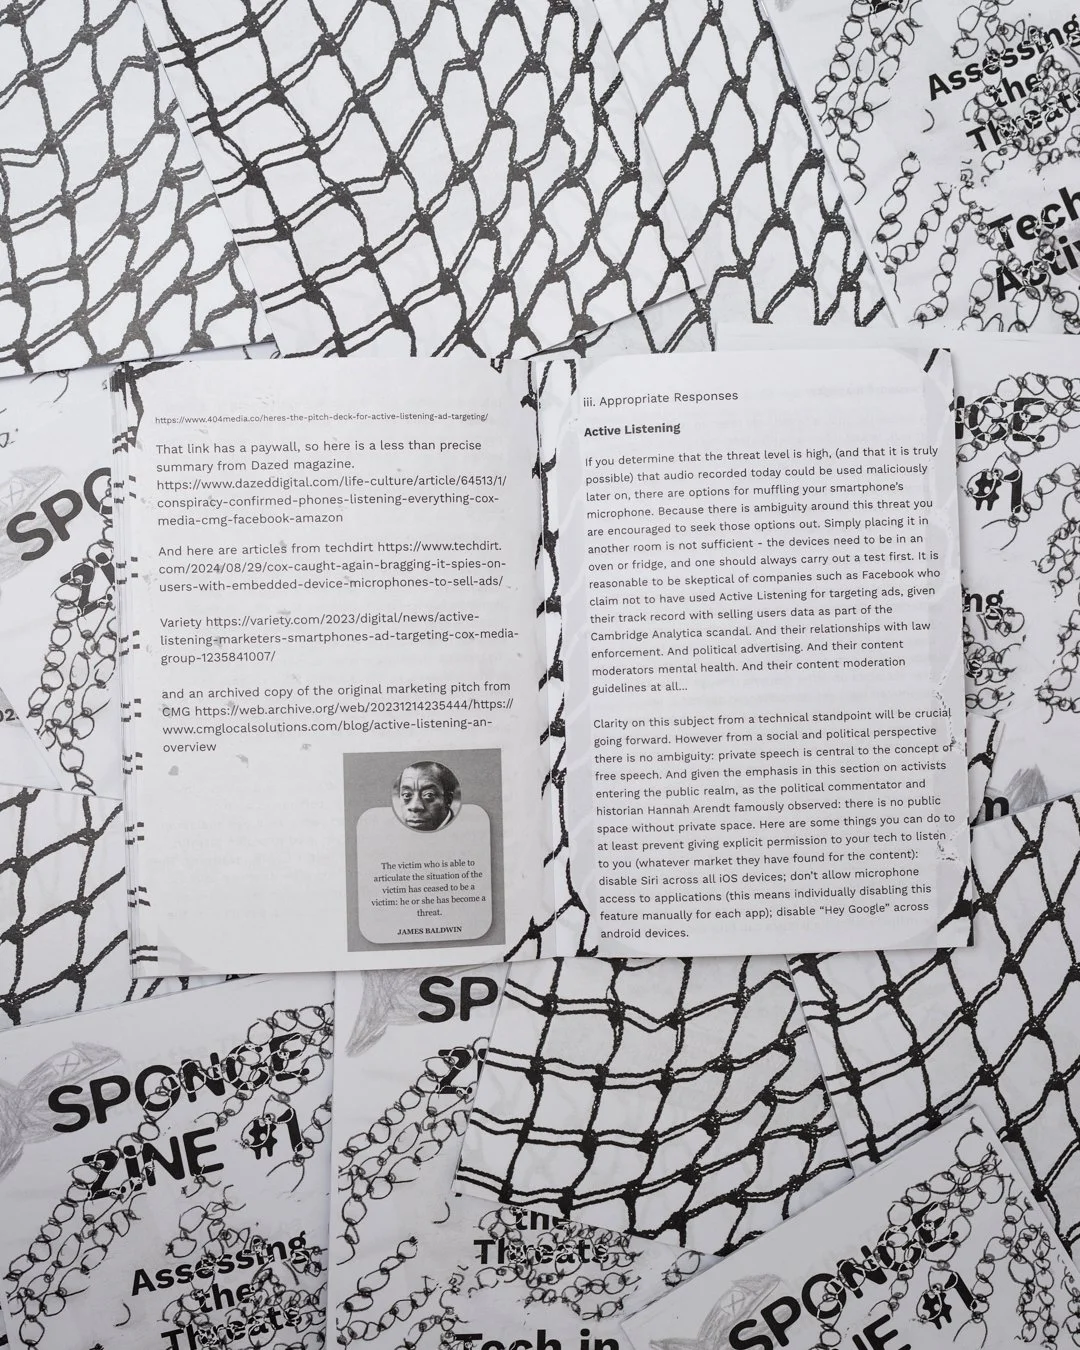 Assessing
the
Threats
Tech
https://www.404media.co/heres-the-pitch-deck-for-active-listening-ad-targeting/
That link has a paywall, so here is a less than precise
summary from Dazed magazine.
https://www.dazeddigital.com/life-culture/article/64513/1/
conspiracy-confirmed-phones-listening-everything-cox-
media-cmg-facebook-amazon
And here are articles from techdirt https://www.techdirt.
com/2024/08/29/cox-caught-again-bragging-it-spies-on-
users-with-embedded-device-microphones-to-sell-ads/
Variety https://variety.com/2023/digital/news/active-
listening-marketers-smartphones-ad-targeting-cox-media-
group-1235841007/
and an archived copy of the original marketing pitch from
CMG https://web.archive.org/web/20231214235444/https://
www.cmglocalsolutions.com/blog/active-listening-an-
overview
The victim who is able to
articulate the situation of the
victim has ceased to be a
victim: he or she has become a
threat.
JAMES BALDWIN
iii. Appropriate Responses
Active Listening
If you determine that the threat level is high, (and that it is truly
possible) that audio recorded today could be used maliciously
later on, there are options for muffling your smartphone's
microphone. Because there is ambiguity around this threat you
are encouraged to seek those options out. Simply placing it in
another room is not sufficient – the devices need to be in an
oven or fridge, and one should always carry out a test first. It is
reasonable to be skeptical of companies such as Facebook who
claim not to have used Active Listening for targeting ads, given
their track record with selling users data as part of the
Cambridge Analytica scandal. And their relationships with law
enforcement. And political advertising. And their content
moderators mental health. And their content moderation
guidelines at all...
Clarity on this subject from a technical standpoint will be crucial
going forward. However from a social and political perspective
there is no ambiguity: private speech is central to the concept of
free speech. And given the emphasis in this section on activists
entering the public realm, as the political commentator and
historian Hannah Arendt famously observed: there is no public
space without private space. Here are some things you can do to
at least prevent giving explicit permission to your tech to listen
to you (whatever market they have found for the content):
disable Siri across all iOS devices; don't allow microphone
access to applications (this means individually disabling this
feature manually for each app); disable “Hey Google” across
android devices.
SPO
#1
SPONGE
ZiNE #1
Assessing
the
Threats
SP
the
Threats
Tech in
SPONGE
NE #1